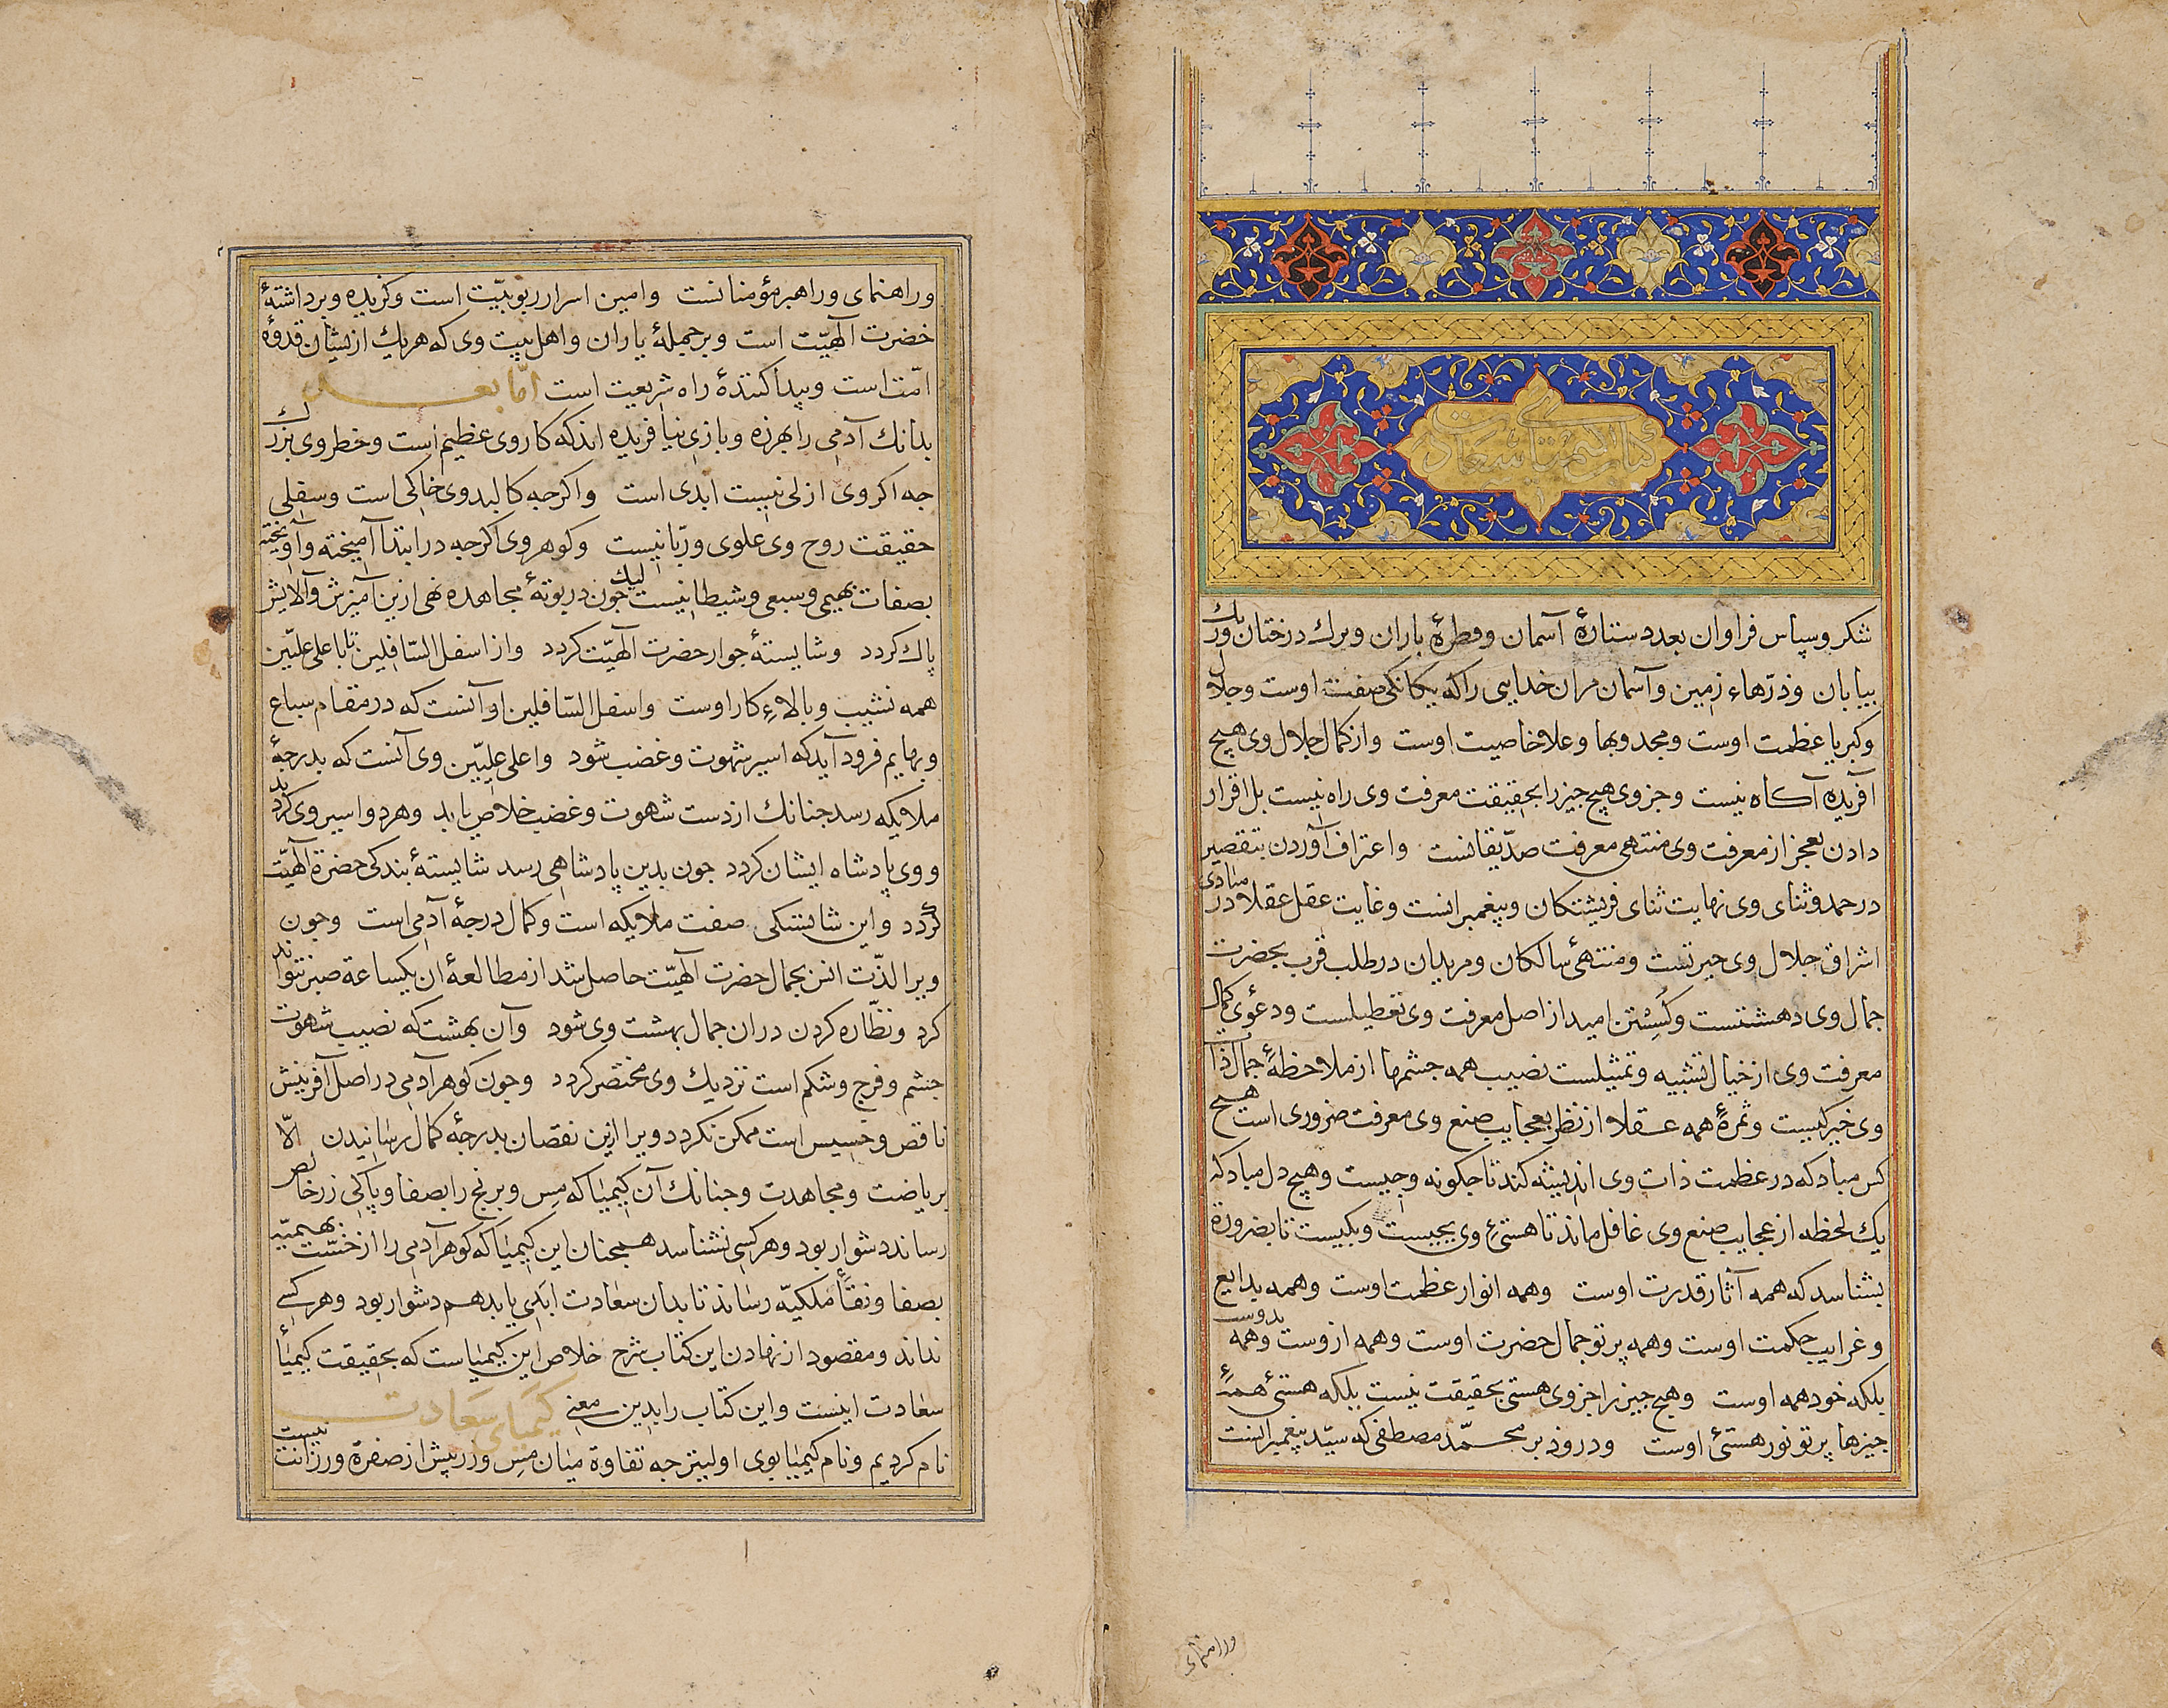 كتاب الكيمياى سعادت
شكر و سپاس فراوان بعدد ستارهٔ آسمان و قطرهٔ باران و برك درختان و ريك
بيابان و ذرّهاء زمين و آسمان مران خدايى را كه يكانكى صفت اوست و جلال
و كبريا عظمت اوست و مجد و بها و علا خاصيت اوست و از كمال جلال وى هيچ
آفريده آكاه نيست و جز وى هيچ جيز را بحقيقت معرفت وى راه نيست بل اقرار
دادن بعجز از معرفت وى منتهى معرفت صدّيقانست و اعتراف آوردن بتقصير
در حمد و ثناى وى نهايت ثناى فريشتكان و پيغمبرانست و غايت عقل عقلا در مبادى
اشراق جلال وى حيرتست و منتهىٔ سالكان و مريدان در طلب قرب بحضرت
جمال وى دهشتست و كُسِستن اميد از اصل معرفت وى تعطيلست و دعوىٔ كمال
معرفت وى از خيال تشبيه و تمثيلست نصيب همه جشمها از ملاحظهٔ جمال ذات
وى خيركيست و ثمرهٔ همه عقلا از نظر بعجايب صنع وى معرفت ضرورى است هيچ
كس مباد كه در عظمت ذات وى انديشه كند تا جكونه و جيست و هيچ دل مباد كه
يك لحظه از عجايب صنع وى غافل ماند تا هستىٔ وى بجيست و بكيست تا بضرورة
بشناسد كه همه آثار قدرت اوست و همه انوار عظمت اوست و همه بدايع
و غرايب حكمت اوست و همه پرتو جمال حضرت اوست و همه ازوست و همه بدوست
بلكه خود همه اوست و هيچ جيز را جز وى هستى بحقيقت نيست بلكه هستىٔ همهٔ
جيزها پرتو نور هستىٔ اوست و درود بر محمّد مصطفى كه سيّد پيغمبرانست
وراهنماى
و راهنماى و راهبر مؤمنانست و امين اسرار ربوبيّت است و كزيده و برداشتهٔ
حضرت الٓهيّت است و بر جملهٔ ياران و اهل بيت وى كه هر يك ازيشان قدوهٔ
امّت است و پيدا كنندهٔ راه شريعت است امّا بعد
بدانك آدمى را بهرزه و بازى نيافريده اند كه كار وى عظيم است و خطر وى بزرك
جه اكر وى ازلى نيست ابدى است و اكرجه كالبد وى خاكى است و سفلى
حقيقت روح وى علوى و ربّانيست و كوهر وى اكرجه در ابتدا آميخته و آويخته
بصفات بهيمى و سبعى و شيطانيست ليك جون در بوتهٔ مجاهده نهى ازين آميزش و آلايش
پاك كردد و شايستهٔ جوار حضرت الٓهيّت كردد و از اسفل السّافلين تا باعلى علّيين
همه نشيب و بالاءِ كار اوست و اسفل السّافلين او آنست كه در مقام سباع
و بهايم فرود آيد كه اسير شهوت و غضب شود و اعلى علّيين وى آنست كه بدرجهٔ
ملايكه رسد جنانك از دست شهوت و غضب خلاص يابد و هر دو اسير وى كردند
و وى پادشاه ايشان كردد جون بدين پادشاهى رسد شايستهٔ بندكى حضرة الٓهيّت
كردد و اين شايستكى صفت ملايكه است و كمال درجهٔ آدمى است و جون
ويرا لذّت انس بجمال حضرت الٓهيّت حاصل شد از مطالعهٔ ان يكساعة صبر نتواند
كرد و نظّاره كردن دران جمال بهشت وى شود و آن بهشت كه نصيب شهوت
جشم و فرج و شكم است نزديك وى مختصر كردد و جون كوهر آدمى در اصل آفرينش
ناقص و خسيس است ممكن نكردد ويرا ازين نقصان بدرجهٔ كمال رسانيدن الّا
برياضت و مجاهدت و جنانك آن كيميا كه مس و برنج را بصفا و پاكى زر خالص
رساند دشوار بود و هر كسى نشناسد همجنان اين كيميا كه كوهر آدمى را از خسّت بهيميّه
بصفا و نفأَ ملكيّه رساند تا بدان سعادت ابدى يابد هم دشوار بود و هر كسى
نداند و مقصود از نهادن اين كتاب شرح خلاص اين كيمياست كه بحقيقت كيمياءٔ
سعادت اينست و اين كتاب را بدين معنى كيمياى سعادت
نام كرديم و نام كيميا بوى اوليتر جه تفاوة ميان مس و زر پيش از صفرة و رزانت نيست